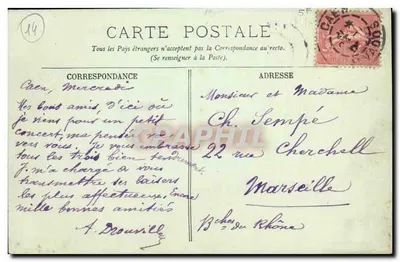 14
CARTE POSTALE
Tous les Pays étrangers n'acceptent pas la Correspondance au recto.
(Se renseigner à la Poste).
CORRESPONDANCE
Caen, Mercredi
Mes bons amis, d'ici où
je viens pour un petit
concert, ma pensée va
vers vous. Je vous embrasse
tous les trois bien tendrement.
J. m'a chargé à vous
transmettre ses baisers
les plus affectueux. Encore
mille bonnes amitiés
A. Drouville
ADRESSE
Monsieur et Madame
Ch. Sempé
22 rue Cherchell
Marseille
Bches du Rhône
CAEN